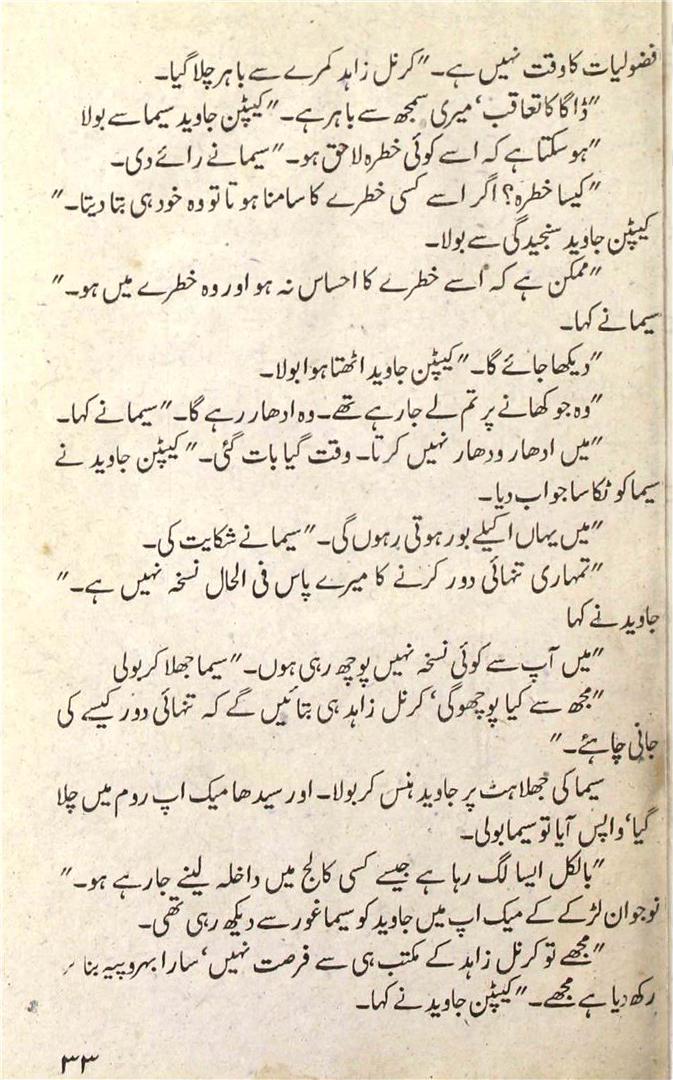 فضولیات کا وقت نہیں ہے۔" کرنل زاہد کمرے سے باہر چلا گیا۔
"ڈاگا کا تعاقب' میری سمجھ سے باہر ہے۔" کیپٹن جاوید سیما سے بولا
"ہو سکتا ہے کہ اسے کوئی خطرہ لاحق ہو۔" سیما نے رائے دی۔
"کیسا خطرہ؟ اگر اسے کسی خطرے کا سامنا ہوتا تو وہ خود ہی بتا دیتا۔"
کیپٹن جاوید سنجیدگی سے بولا۔
"ممکن ہے کہ اُسے خطرے کا احساس نہ ہو اور وہ خطرے میں ہو۔"
سیما نے کہا۔
"دیکھا جائے گا۔" کیپٹن جاوید اٹھتا ہوا بولا۔
"وہ جو کھانے پر تم لے جا رہے تھے۔ وہ ادھار رہے گا۔" سیما نے کہا۔
"میں ادھار ودھار نہیں کرتا۔ وقت گیا بات گئی۔" کیپٹن جاوید نے
سیما کو ٹکا سا جواب دیا۔
"میں یہاں اکیلے بور ہوتی رہوں گی۔" سیما نے شکایت کی۔
"تمہاری تنہائی دور کرنے کا میرے پاس فی الحال نسخہ نہیں ہے۔"
جاوید نے کہا
"میں آپ سے کوئی نسخہ نہیں پوچھ رہی ہوں۔" سیما جھلا کر بولی
"مجھ سے کیا پوچھوگی' کرنل زاہد ہی بتائیں گے کہ تنہائی دور کیسے کی
جانی چاہئے۔"
سیما کی جھلاہٹ پر جاوید ہنس کر بولا۔ اور سیدھا میک اپ روم میں چلا
گیا' واپس آیا تو سیما بولی۔
"بالکل ایسا لگ رہا ہے جیسے کسی کالج میں داخلہ لینے جا رہے ہو۔"
نوجوان لڑکے کے میک اپ میں جاوید کو سیما غور سے دیکھ رہی تھی۔
"مجھے تو کرنل زاہد کے مکتب ہی سے فرصت نہیں' سارا بہروپیہ بنا
رکھ دیا ہے مجھے۔" کیپٹن جاوید نے کہا۔
۳۳